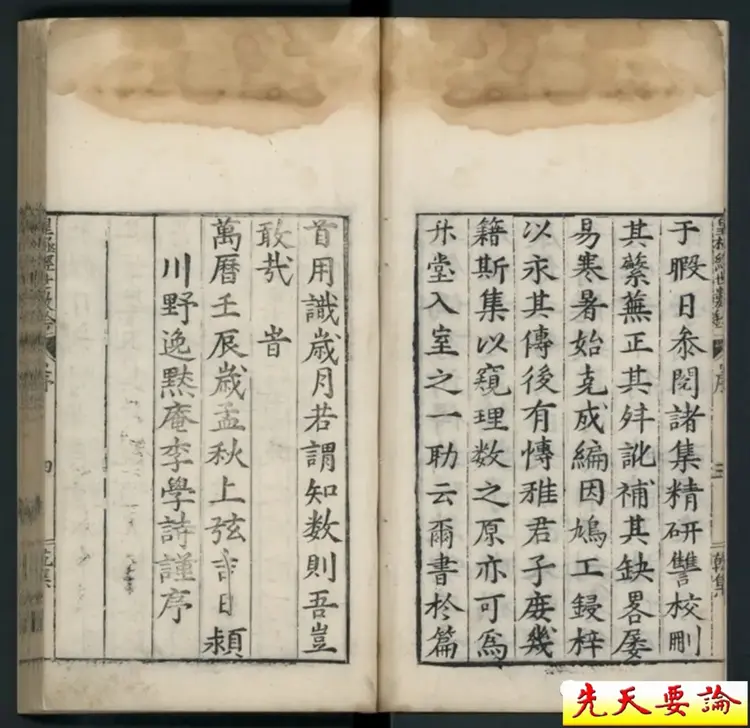 于暇日叅閱諸集精研讐校刪
其蘩蕪正其舛訛補其缺畧屡
易寒暑始克成編因鳩工鋟梓
以永其傳後有愽雅君子庻幾
籍斯集以窺理数之原亦可爲
升堂入室之一助云爾書於篇
序
三
乾集
首用識歲月若謂知数則吾豈
敢哉 旹
萬曆壬辰歲孟秋上弦吉日潁
川野逸黙庵李學詩謹序
序
四
乾集
先天要論